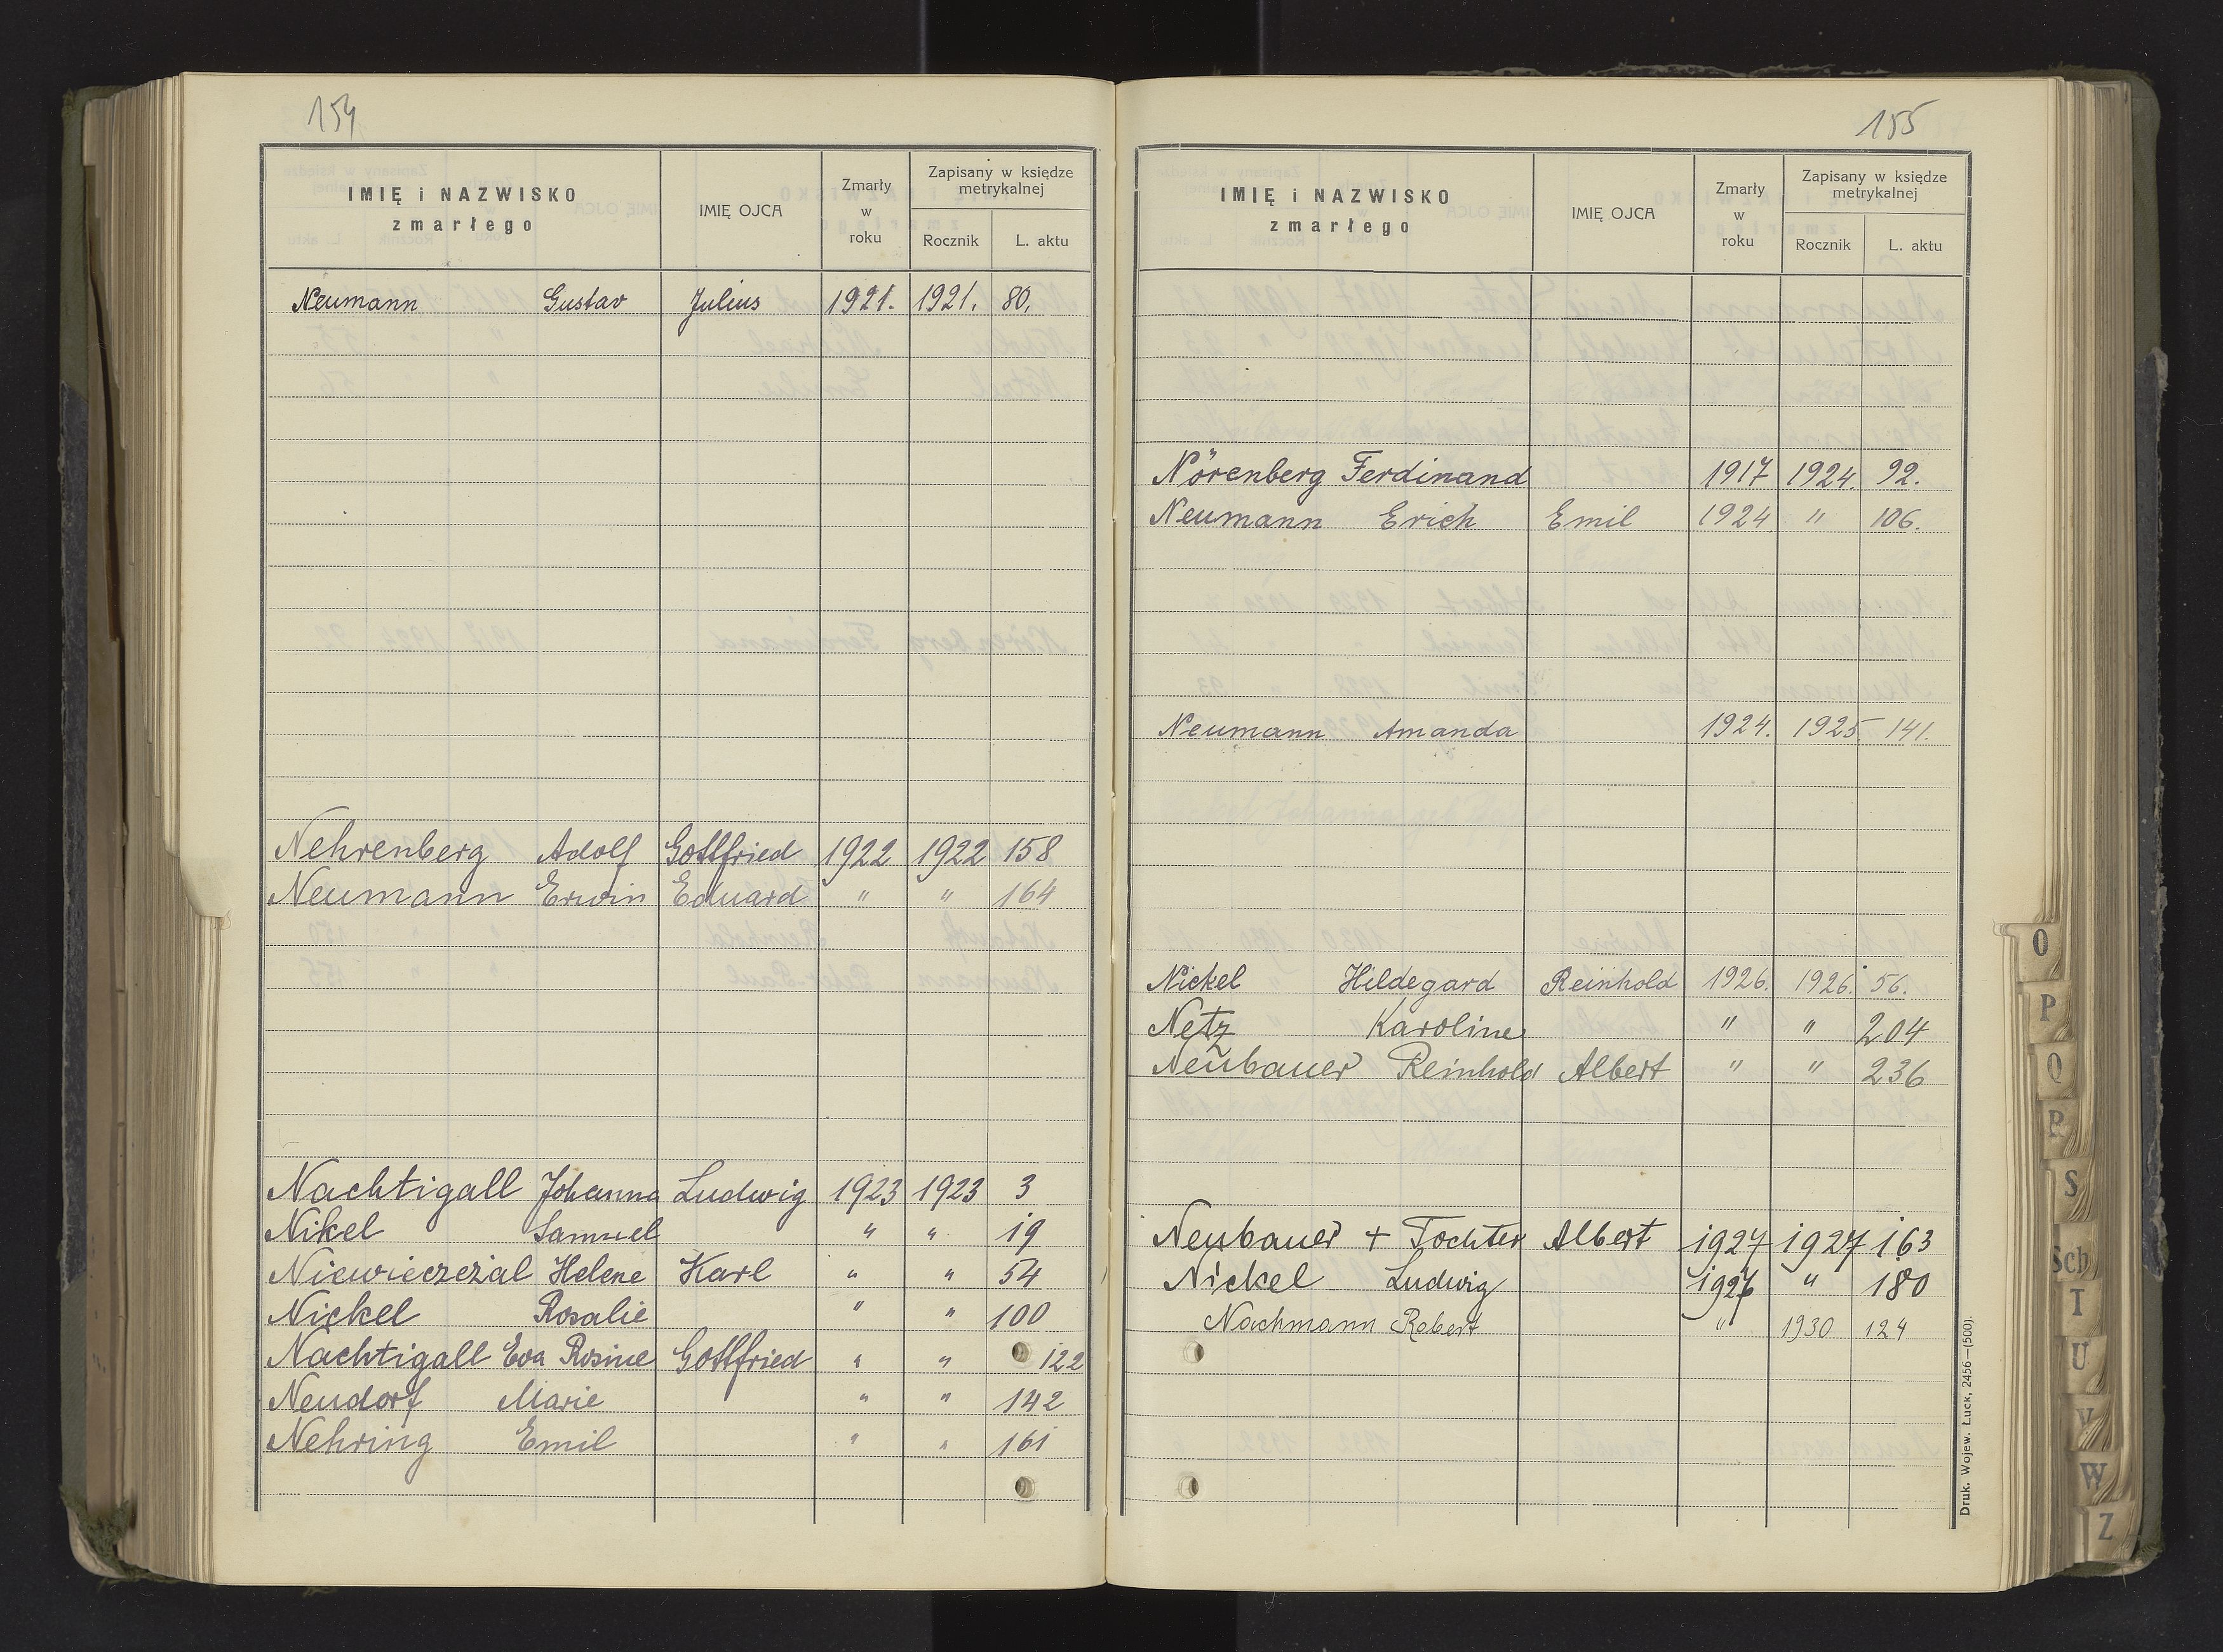 154
IMIĘ i NAZWISKO
zmarłego
IMIĘ OJCA
Zmarły
w
roku
Zapisany w księdze
metrykalnej
Rocznik L. aktu
Neumann Gustav Julius 1921. 1921. 80.
Nehrenberg Adolf Gottfried 1922 1922 158
Neumann Erwin Eduard " " 164
Nachtigall Johanna Ludwig 1923 1923 3
Nikel Samuel " " 19
Niewieczezal Helene Karl " " 54
Nickel Rosalie " " 100
Nachtigall Eva Rosine Gottfried " " 122
Neudorf Marie " " 142
Nehring Emil " " 161
155
IMIĘ i NAZWISKO
zmarłego
IMIĘ OJCA
Zmarły
w
roku
Zapisany w księdze
metrykalnej
Rocznik L. aktu
Nörenberg Ferdinand 1917 1924. 92.
Neumann Erich Emil 1924 " 106.
Neumann Amanda 1924. 1925 141.
Nickel Hildegard Reinhold 1926. 1926. 56.
Netz Karoline " " 204
Neubauer Reinhold Albert " " 236
Neubauer + Tochter Albert 1927 1927 163
Nickel Ludwig " 180
Nachmann Robert " 1930 124
Druk. Wojew. Łuck, 2456—(500).
O
P
Q
S
Sch
T
U
V
W
Z